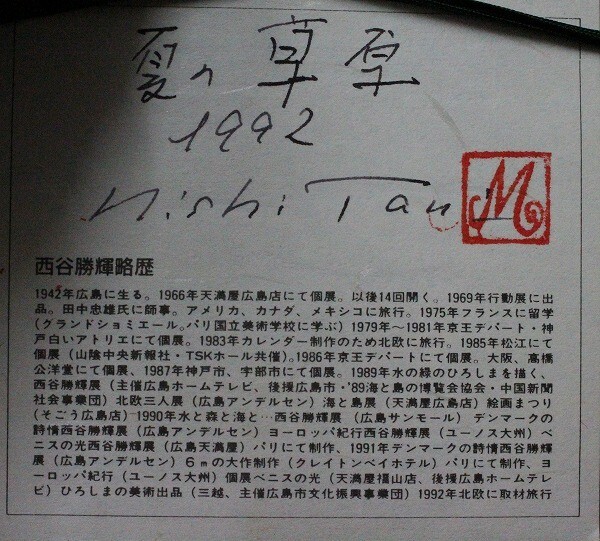 夏の草原
1992
Nishi Tani
M
西谷勝輝略歴
1942年広島に生る。1966年天満屋広島店にて個展。以後14回開く。1969年行動展に出
品。田中忠雄氏に師事。アメリカ、カナダ、メキシコに旅行。1975年フランスに留学
(グランドショミエール。パリ国立美術学校に学ぶ) 1979年〜1981年京王デパート・神
戸白いアトリエにて個展。1983年カレンダー制作のため北欧に旅行。1985年松江にて
個展 (山陰中央新報社・TSKホール共催)。1986年京王デパートにて個展。大阪、高橋
公洋堂にて個展、1987年神戸市、宇部市にて個展。1989年水の緑のひろしまを描く、
西谷勝輝展 (主催広島ホームテレビ、後援広島市・'89海と島の博覧会協会・中国新聞
社会事業団) 北欧三人展 (広島アンデルセン) 海と島展 (天満屋広島店) 絵画まつり
(そごう広島店) 1990年水と森と海と…西谷勝輝展 (広島サンモール) デンマークの
詩情西谷勝輝展 (広島アンデルセン) ヨーロッパ紀行西谷勝輝展 (ユーノス大州) ベ
ニスの光西谷勝輝展 (広島天満屋) パリにて制作、1991年デンマークの詩情西谷勝輝
展 (広島アンデルセン) 6mの大作制作 (クレイトンベイホテル) パリにて制作、ヨ
ーロッパ紀行 (ユーノス大州) 個展ベニスの光 (天満屋福山店、後援広島ホームテレ
ビ) ひろしまの美術出品 (三越、主催広島市文化振興事業団) 1992年北欧に取材旅行